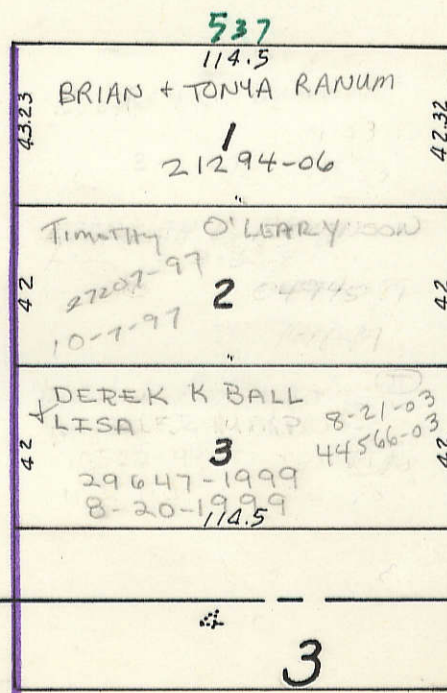 537
114.5
43.23
BRIAN + TONYA RANUM
42.32
1
21294-06
"
Timothy O'LEARY
42
27207-97
2
42
10-7-97
"
DEREK K BALL
+ LISA
8-21-03
44566-03
42
3
42
29647-1999
8-20-1999
114.5
4
3